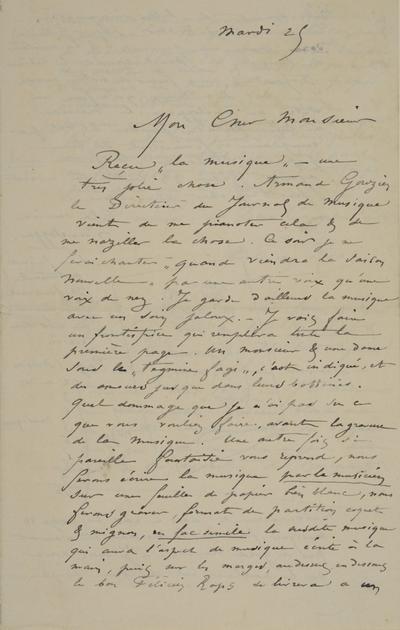 Mardi 25
Mon Cher Monsieur
Reçu "la musique", – une
très jolie chose. Armand Gouzien
le Directeur du Journal de musique
vient de me pianoter cela & de
me naziller la chose. Ce soir je me
ferai chanter "quand viendra la saison
nouvelle –" par une autre voix qu'une
voix de nez. Je garde d'ailleurs la musique
avec un soin jaloux. – Je vais faire
un frontispice qui remplira toute la
première page. Un monsieur & une dame
sous le "tegmine fagi", c'est indiqué, et
des amours jusque dans leurs bottines.
Quel dommage que je n'ai pas su ce
que vous vouliez faire, avant la gravure
de la musique. Une autre fois si
pareille fantaisie vous reprend, nous
ferons écrire la musique par le musicien
sur une feuille de papier bien blanc, nous
ferons graver format de partition coquet
& mignon, en fac simile la susdite musique
qui aura l'aspect de musique écrite à la
main, puis sur les marges, au dessus, en dessous
le bon Félicien Rops se livrera a un